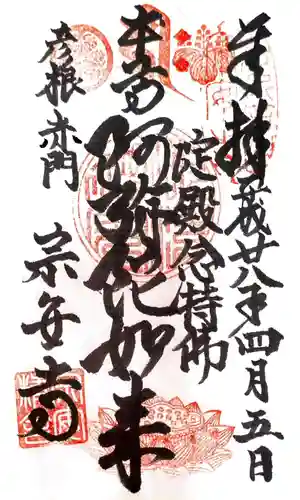 奉拝 平成廿八年四月五日
淀殿念持佛
本尊 阿弥陀如来
彦根 赤門
宗安寺